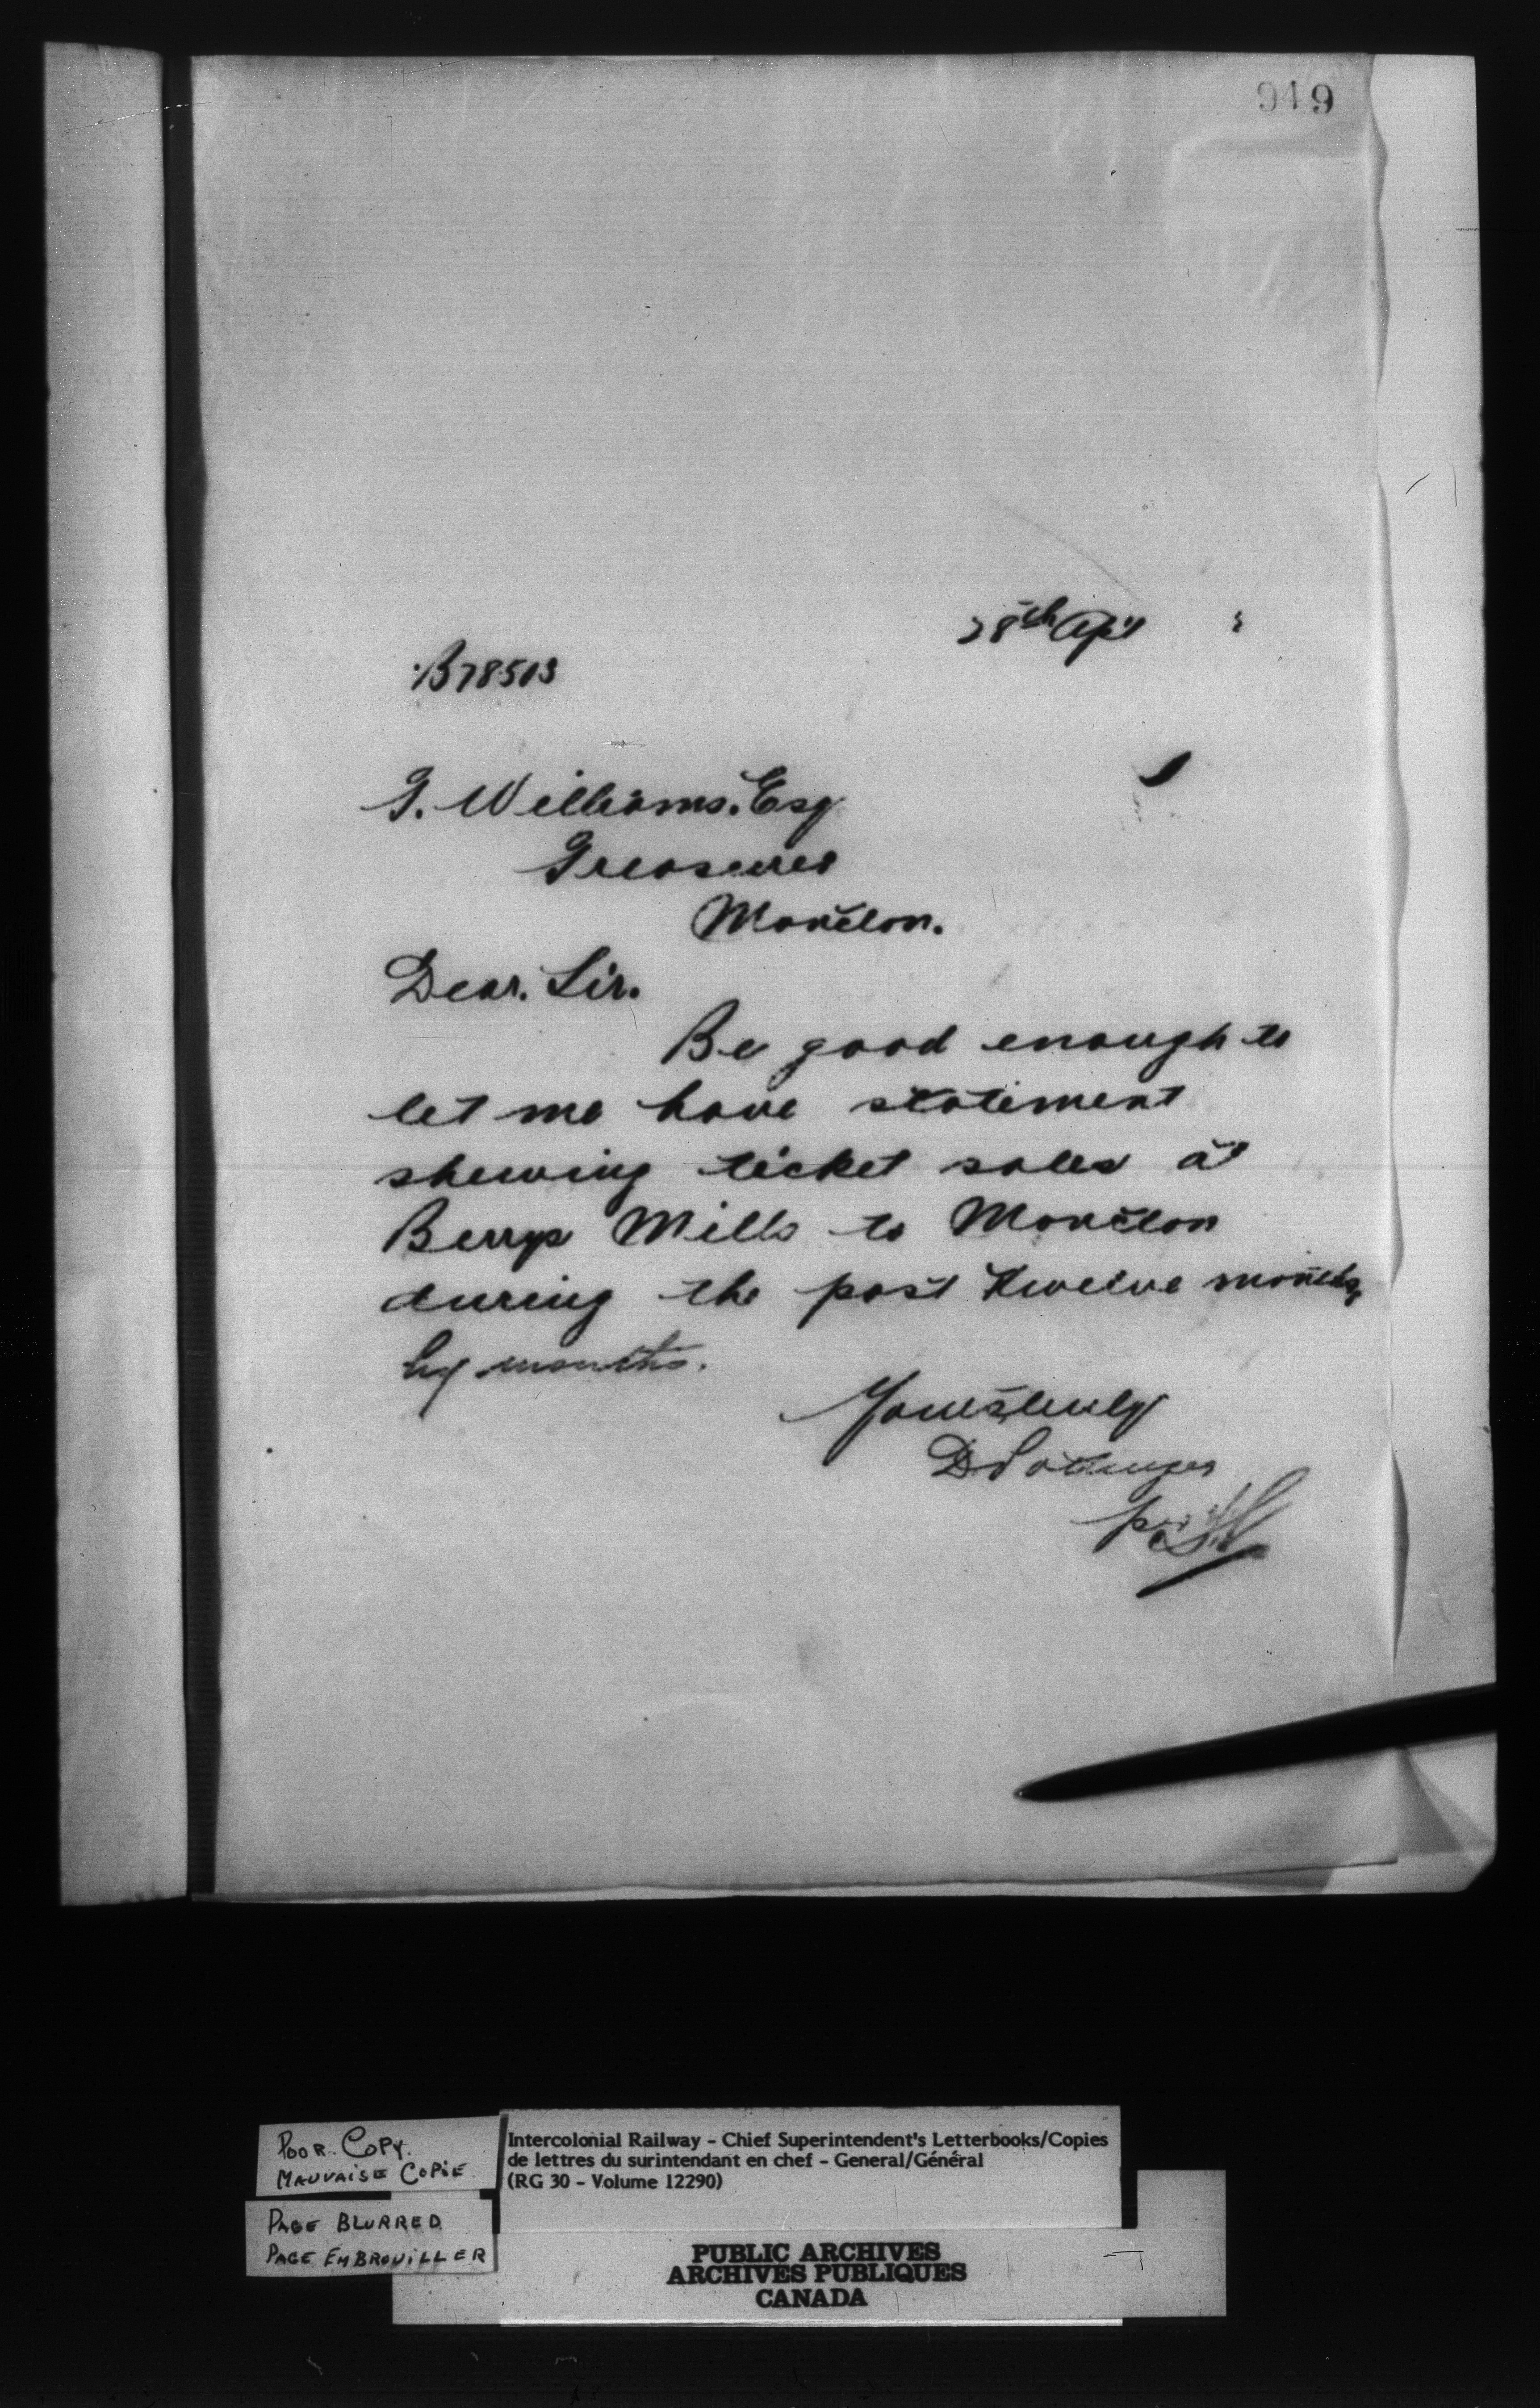 949
28th Apl
B78513
T. Williams. Esq
Treasurer
Moncton.
Dear. Sir.
Be good enough to
let me have statement
shewing ticket sales at
Berrys Mills to Moncton
during the past twelve months,
by months.
Yours truly
D Pottinger
POOR COPY.
MAUVAISE COPIE
PAGE BLURRED
PAGE EMBROUILLER
Intercolonial Railway - Chief Superintendent's Letterbooks/Copies
de lettres du surintendant en chef - General/Général
(RG 30 - Volume 12290)
PUBLIC ARCHIVES
ARCHIVES PUBLIQUES
CANADA